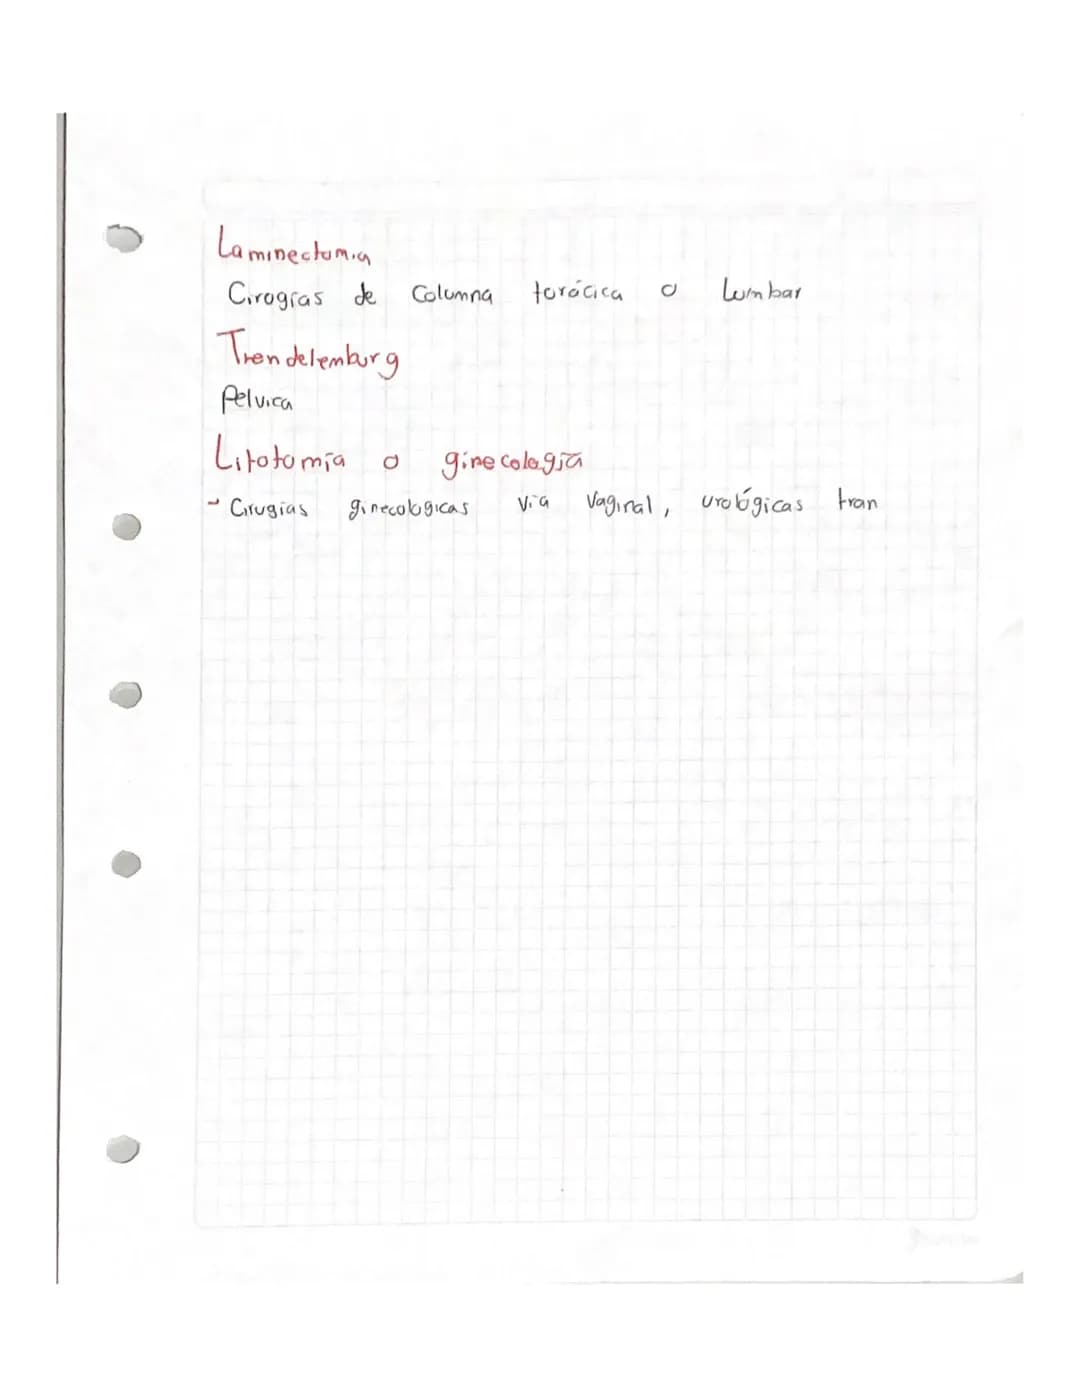 Laminectomia
Cirogías de Columna torácica o Lumbar
Trendelemburg
Pelvica
Litotomía o ginecología
- Cirugías ginecologicas via vaginal, urológicas tran